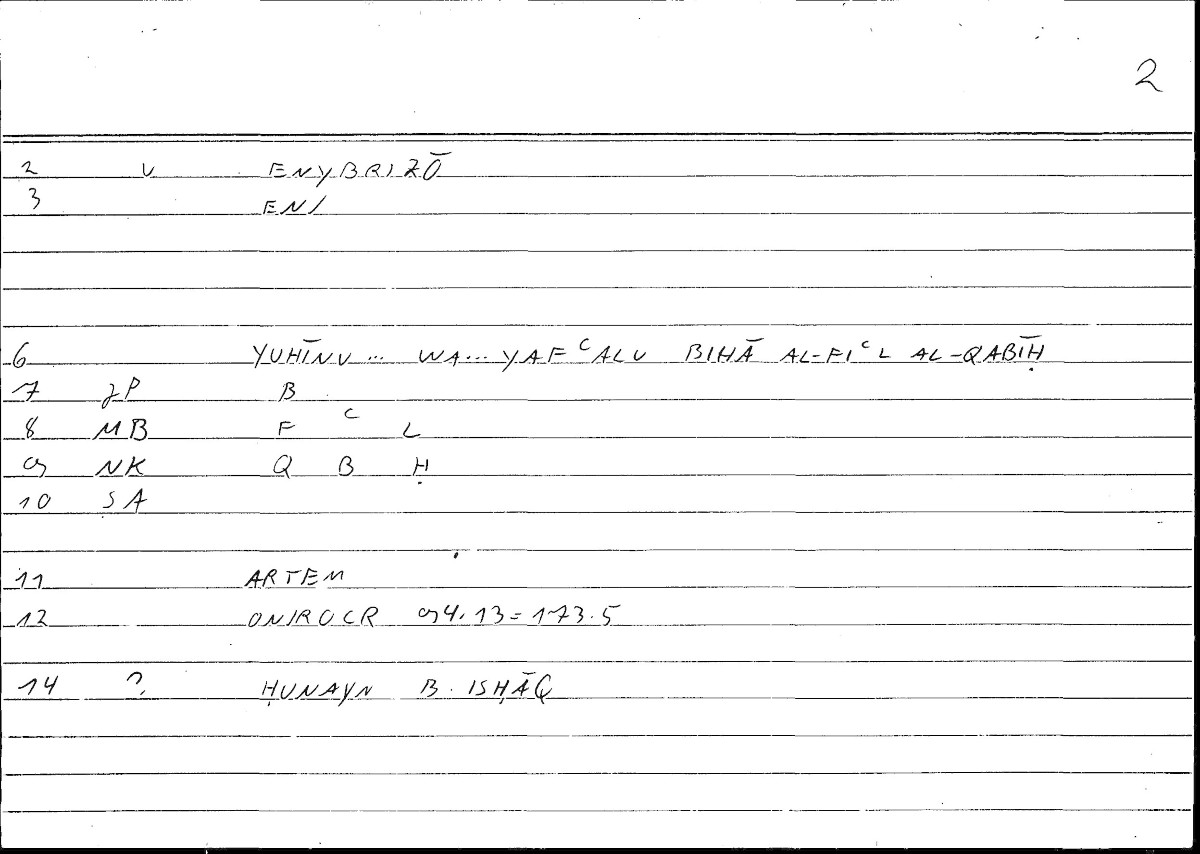 2
2 V ENYBRIZŌ
3 ENI
6 YUHĪNU ... WA... YAFᶜALU BIHĀ AL-FIᶜL AL-QABĪḤ
7 JP B
8 MB F ᶜ L
9 NK Q B Ḥ
10 SA
11 ARTEM
12 ONIROCR 94.13=173.5
14 ? ḤUNAYN B. ISḤĀQ